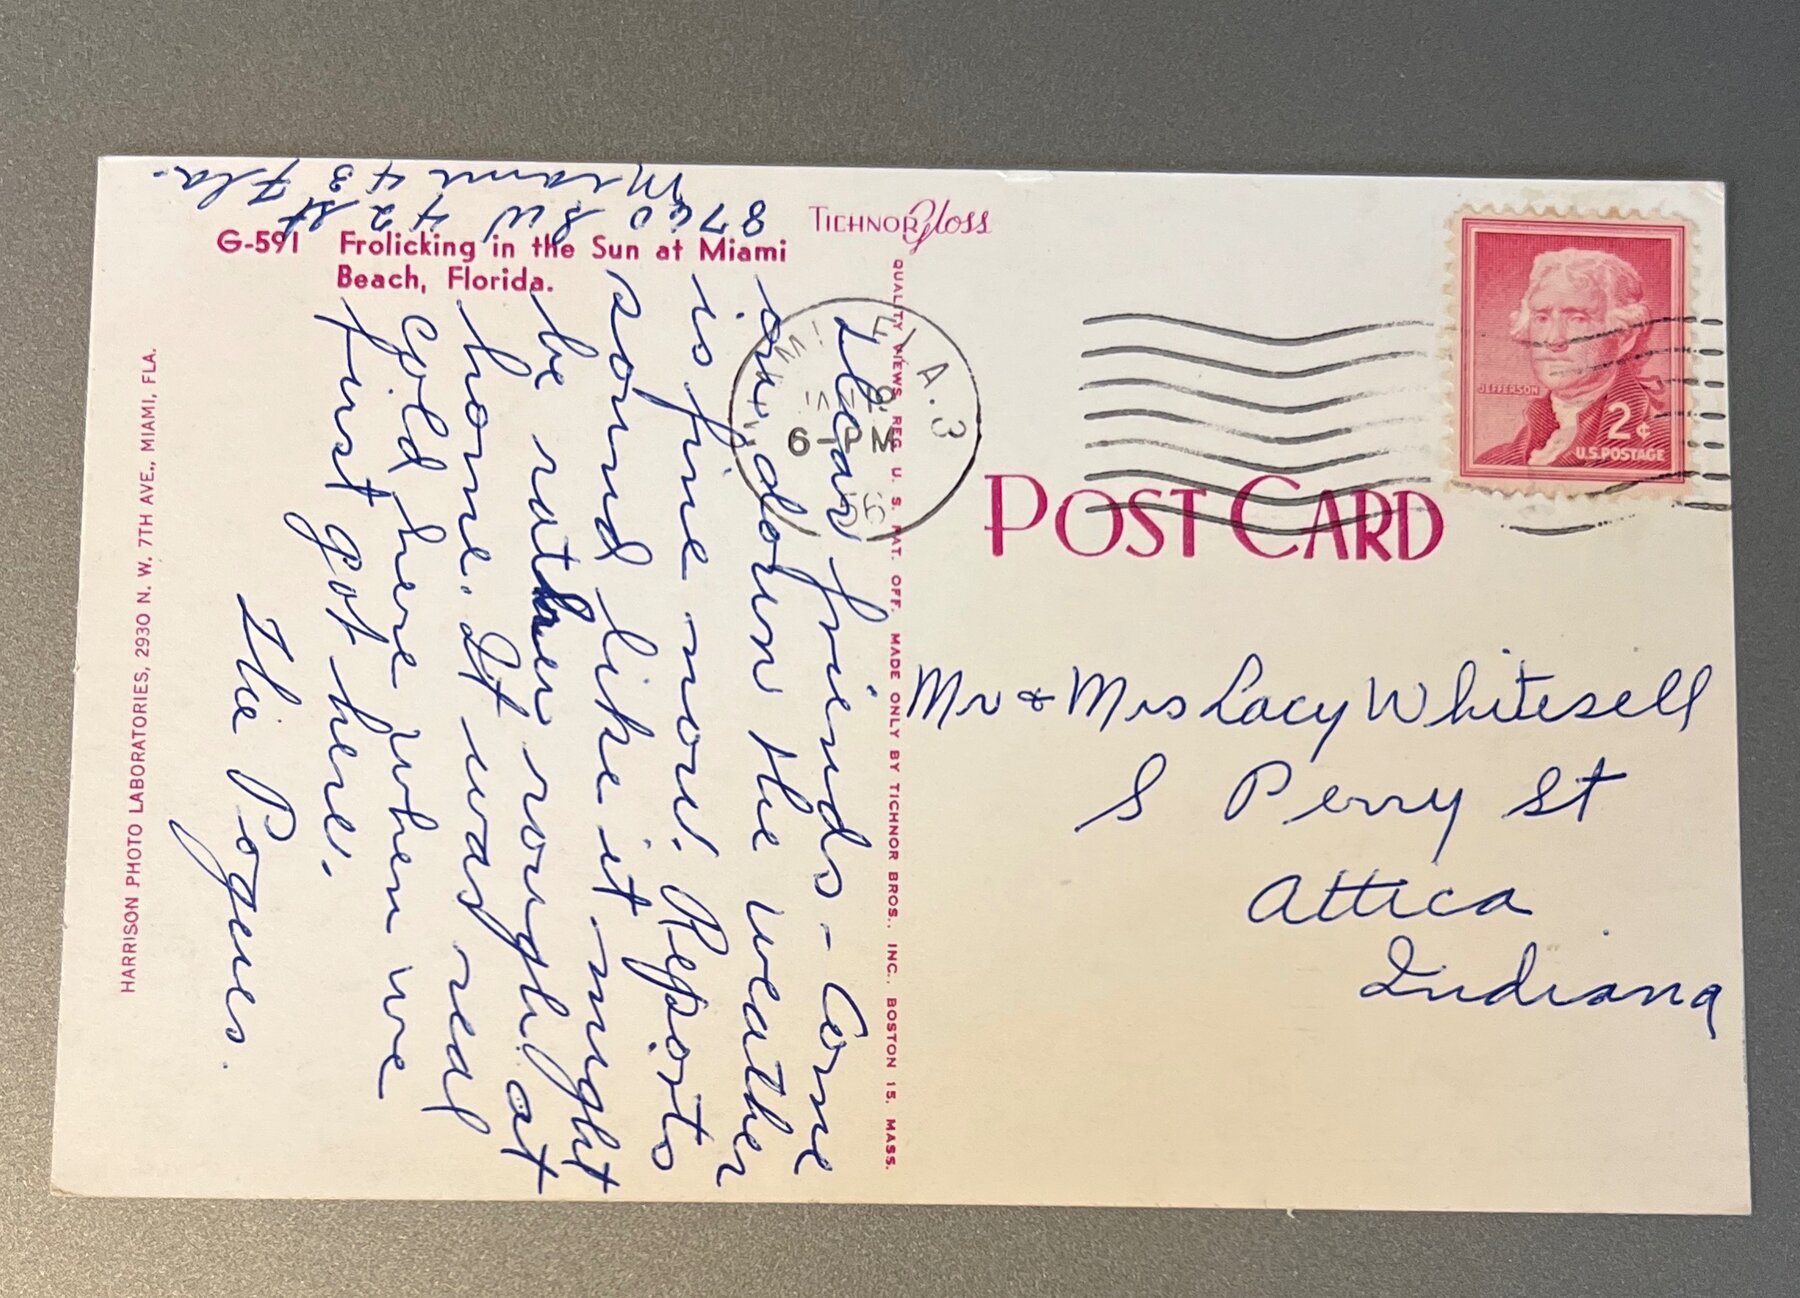 8760 SW 42 St
Miami 43 Fla.
G-591 Frolicking in the Sun at Miami
Beach, Florida.
TICHNOR Gloss
Dear friends - Come
on down the weather
is fine now. Reports
sound like it might
be rather rough at
home. It was real
cold here when we
first got here.
The Pogues.
HARRISON PHOTO LABORATORIES, 2930 N. W. 7TH AVE., MIAMI, FLA.
QUALITY VIEWS, REG. U. S. PAT. OFF. MADE ONLY BY TICHNOR BROS., INC., BOSTON 15, MASS.
MIAMI, FLA. 3
JAN
6-PM
56
JEFFERSON
2¢
U.S. POSTAGE
POST CARD
Mr & Mrs Lacy Whitesell
S Perry St
Attica
Indiana